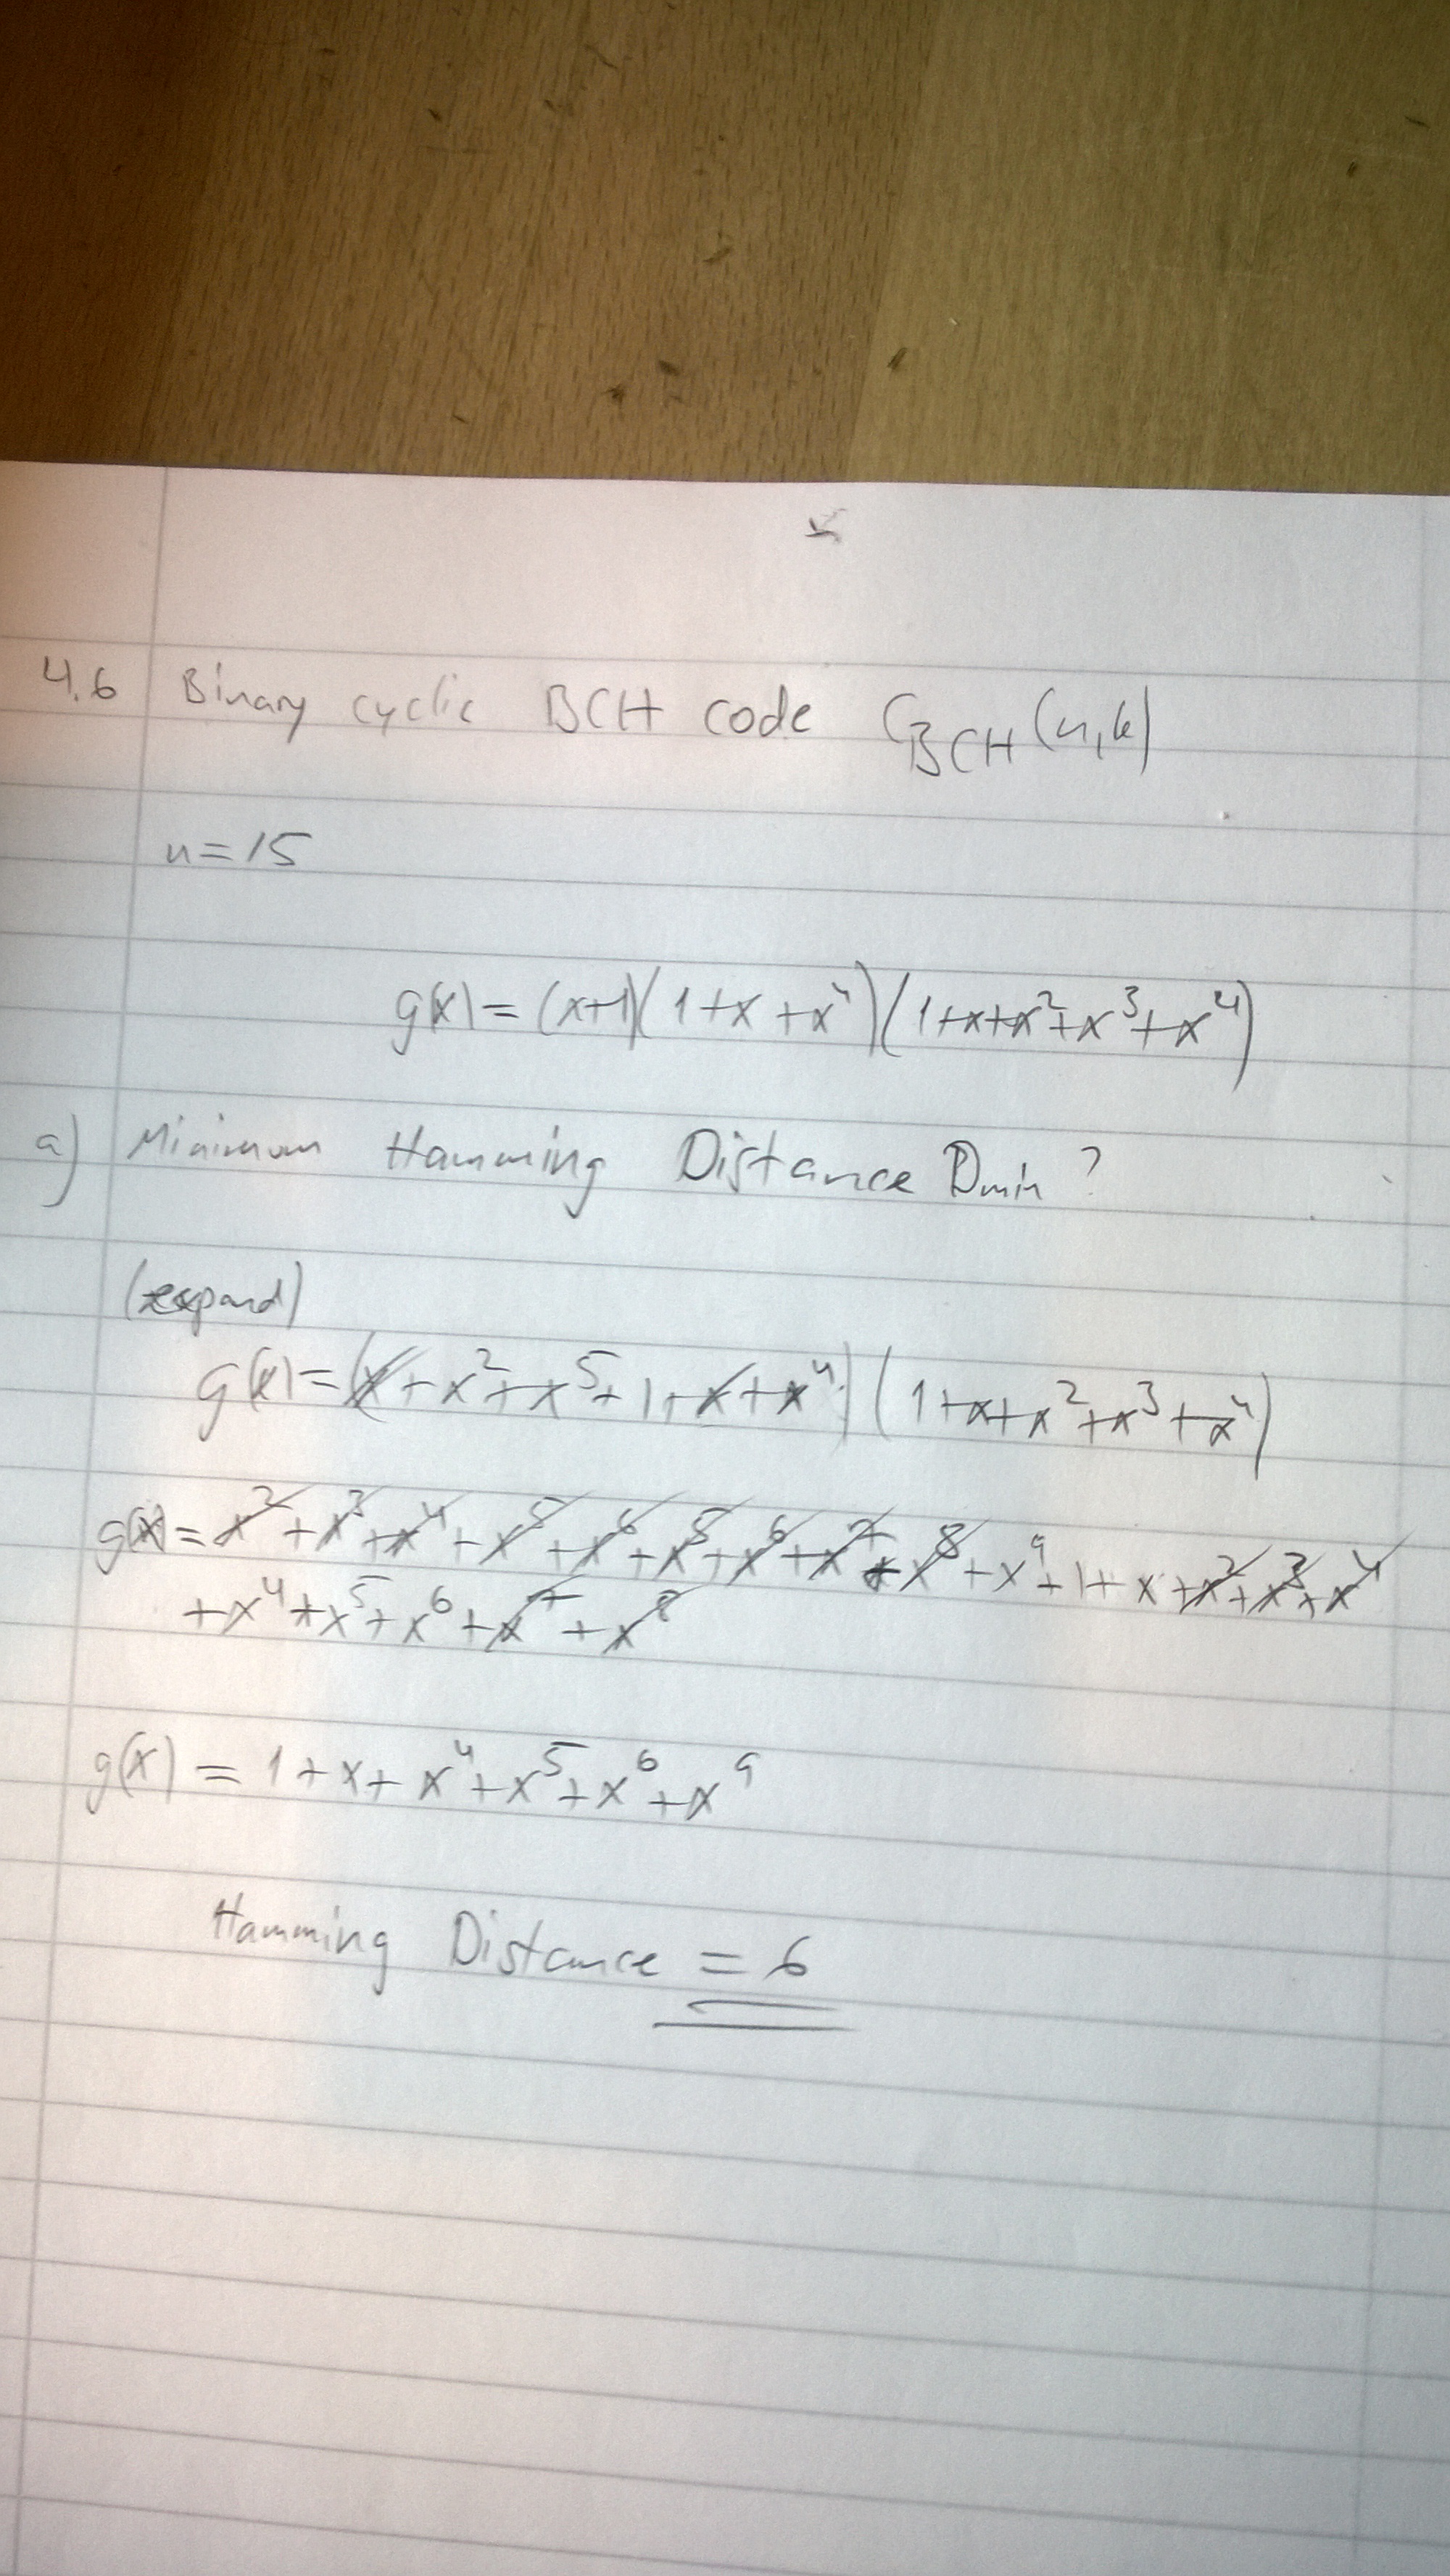 4.6 Binary cyclic BCH code C_BCH(n,k)
n=15
g(x)=(x+1)(1+x+x⁴)(1+x+x²+x³+x⁴)
a) Minimum Hamming Distance Dmin?
(expand)
g(x)=(x+x²+x⁵+1+x+x⁴)(1+x+x²+x³+x⁴)
g(x)=x²+x³+x⁴+x⁵+x⁶+x⁵+x⁶+x⁷+x⁸+x⁹+1+x+x²+x³+x⁴
+x⁴+x⁵+x⁶+x⁷+x⁸
g(x)=1+x+x⁴+x⁵+x⁶+x⁹
Hamming Distance = 6